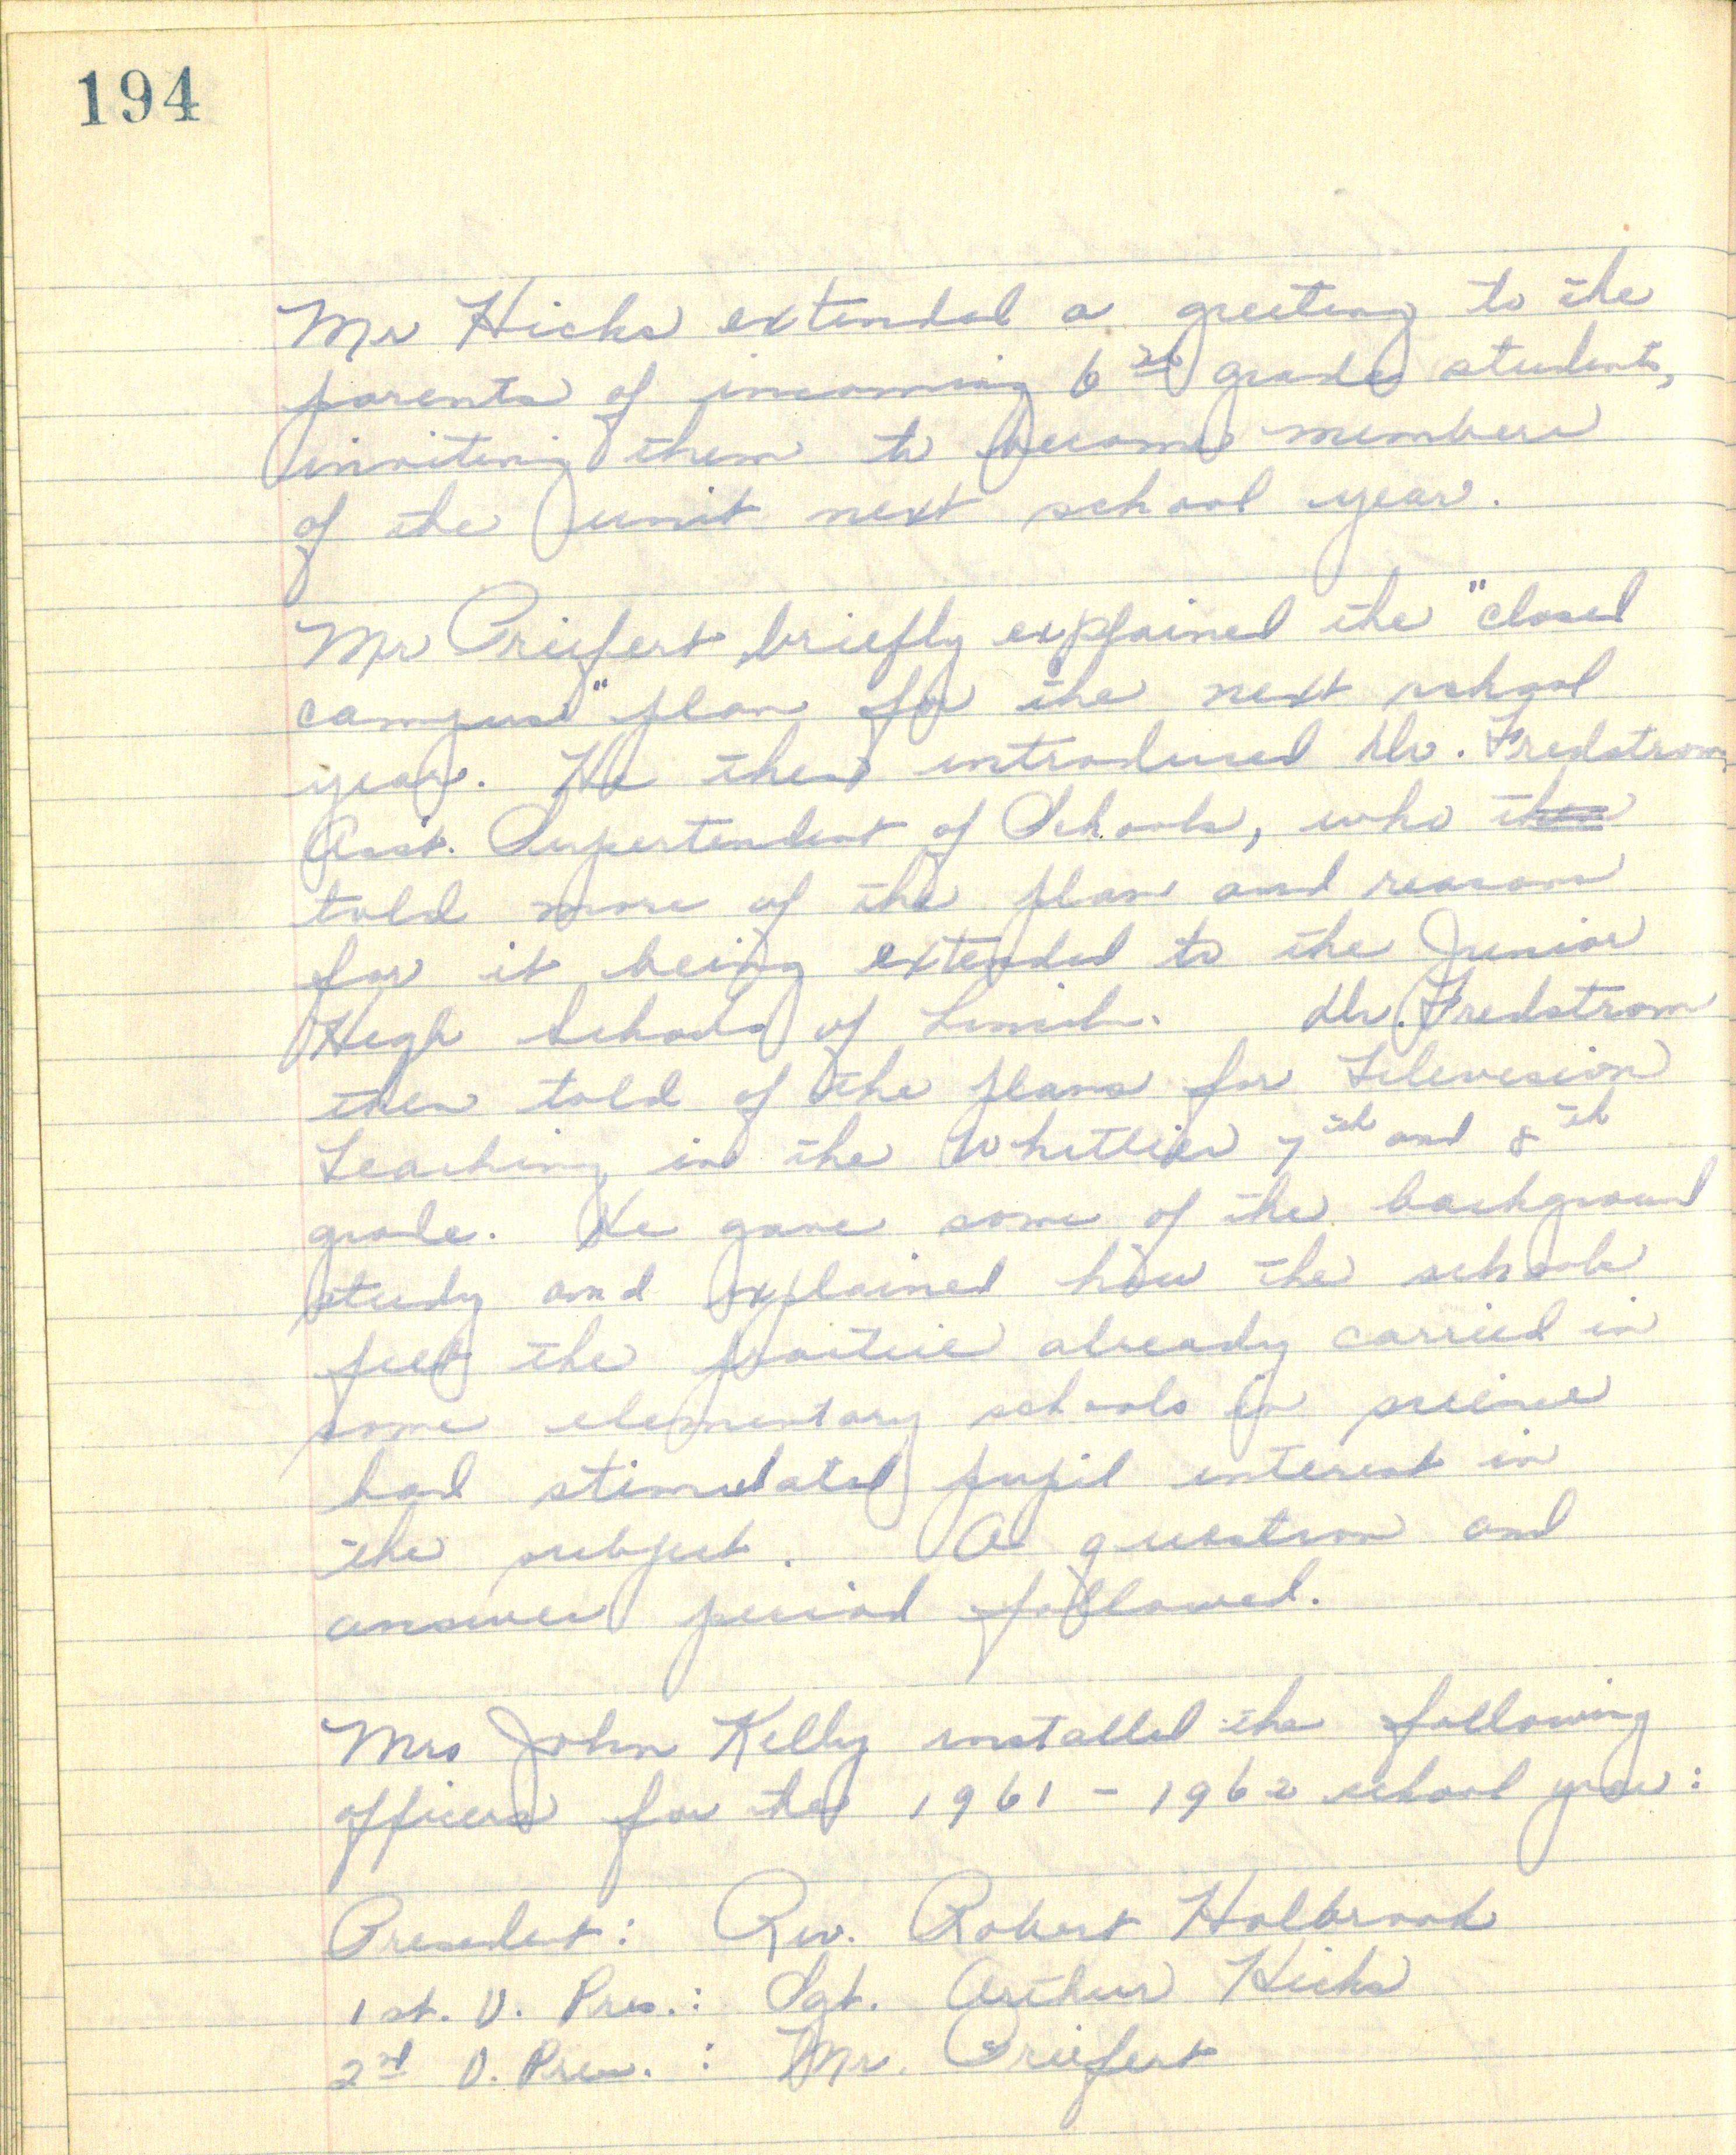 194
Mr Hicks extended a greeting to the
parents of incoming 6th grade students,
inviting them to become members
of the unit next school year.
Mr Priefert briefly explained the "closed
campus" plan for the next school
year. He then introduced Dr. Fredstrom,
Asst. Supertendent of Schools, who then
told more of the plan and reasons
for it being extended to the Junior
High Schools of Lincoln. Dr. Fredstrom
then told of the plans for Television
Teaching in the Whittier 7th and 8th
grade. He gave some of the background
study and explained how the schools
felt the practice already carried in
some elementary schools in science
had stimulated pupil interest in
the subject. A question and
answer period followed.
Mrs John Kelly installed the following
officers for the 1961 - 1962 school year:
President: Rev. Robert Holbrook
1st. V. Pres.: Sgt. Arthur Hicks
2nd V. Pres.: Mr. Priefert